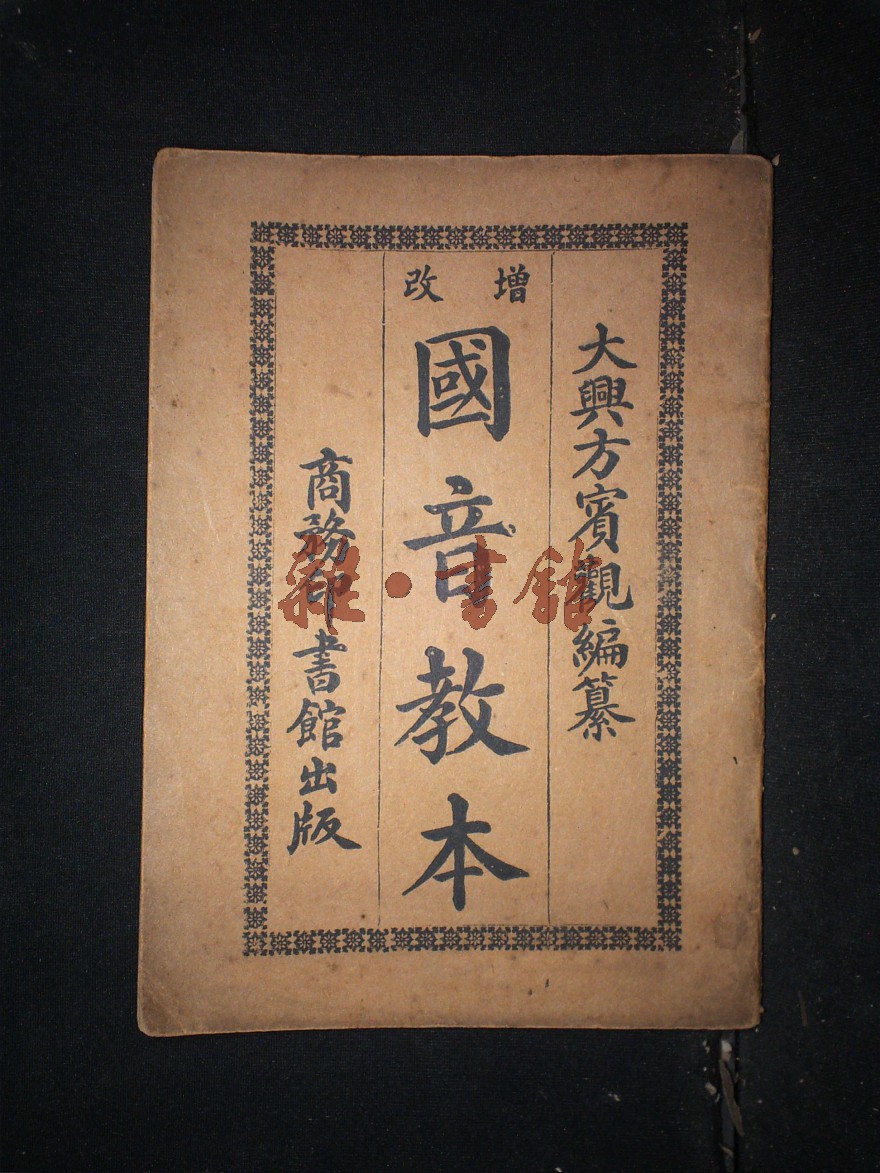 增改
大興方賓觀編纂
國音教本
商務印書館出版
雜·書館